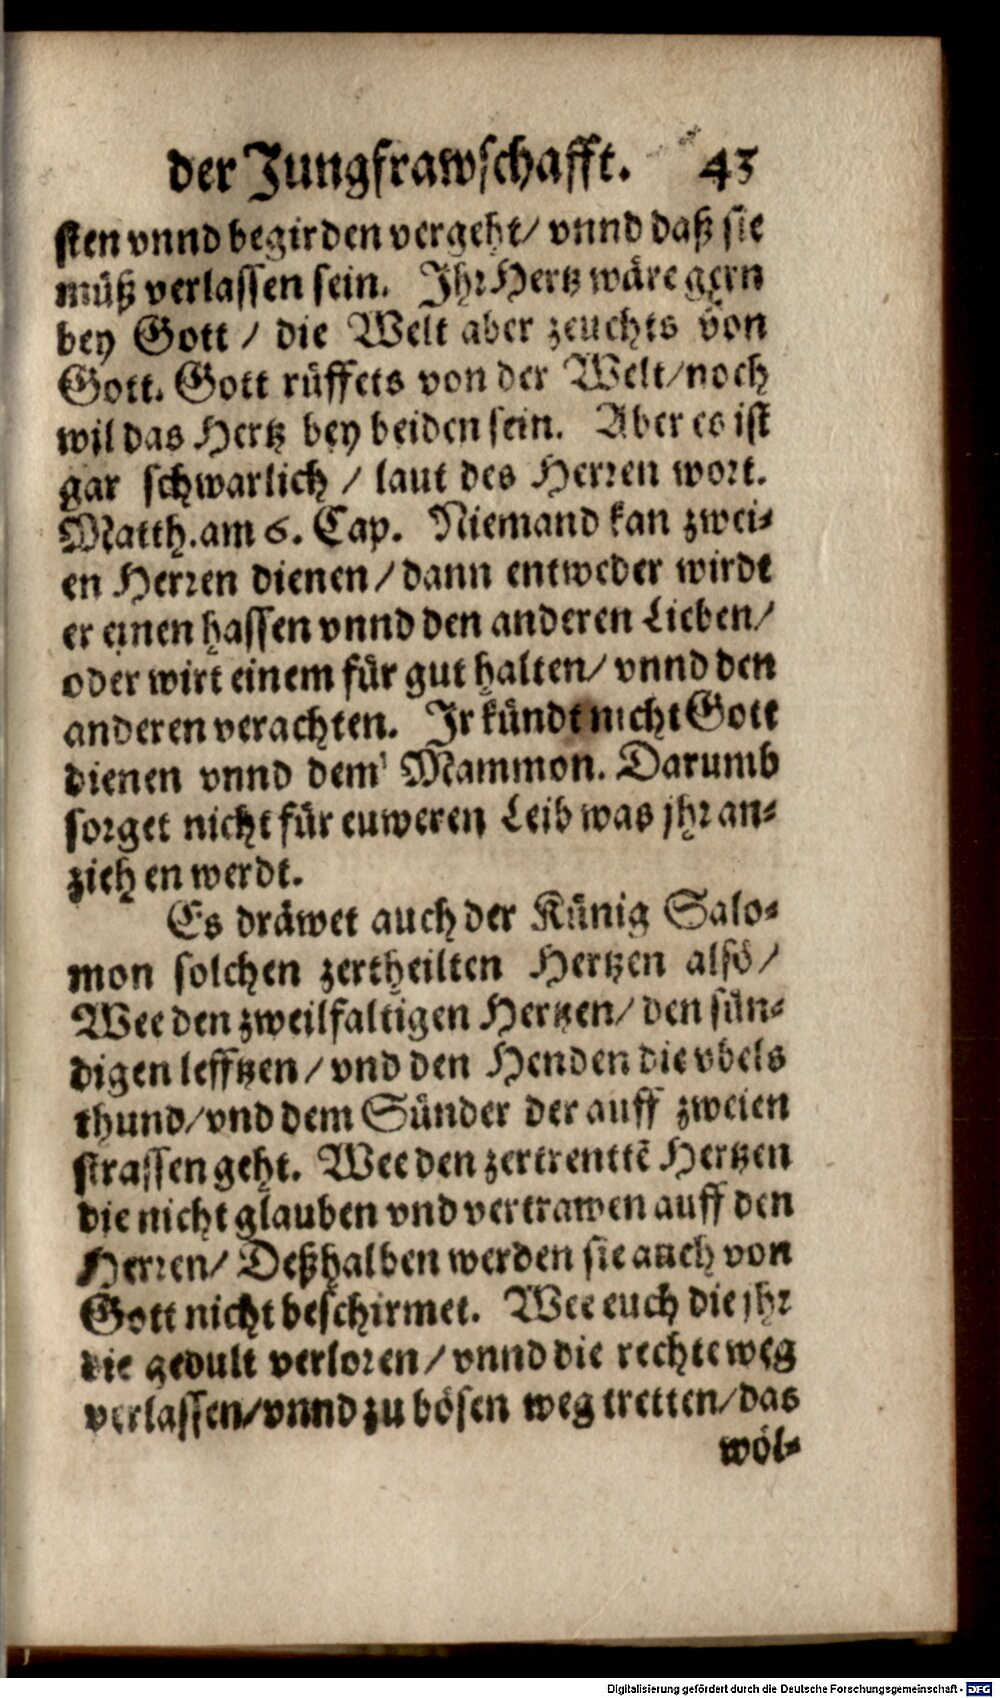 der Jungfrawschafft. 43
sten vnnd begirden vergeht/ vnnd daß sie
müß verlassen sein. Ihr Hertz wäre gern
bey Gott / die Welt aber zeuchts von
Gott. Gott rüffets von der Welt/noch
wil das Hertz bey beiden sein. Aber es ist
gar schwarlich / laut des Herren wort.
Matth.am 6. Cap. Niemand kan zwei-
en Herren dienen/dann entweder wirdt
er einen hassen vnnd den anderen Lieben/
oder wirt einem für gut halten/ vnnd den
anderen verachten. Ir kündt nicht Gott
dienen vnnd dem Mammon. Darumb
sorget nicht für euweren Leib was jhr an-
ziehen werdt.
Es dräwet auch der Künig Salo-
mon solchen zertheilten Hertzen also/
Wee den zweilfaltigen Hertzen/ den sün-
digen lefftzen/ vnd den Henden die vbels
thund/vnd dem Sünder der auff zweien
strassen geht. Wee den zertrenttē Hertzen
die nicht glauben vnd vertrawen auff den
Herren/ Deßhalben werden sie auch von
Gott nicht beschirmet. Wee euch die jhr
die gedult verloren/vnnd die rechte weg
verlassen/vnnd zu bösen weg tretten/das
wöl-
Digitalisierung gefördert durch die Deutsche Forschungsgemeinschaft - DFG